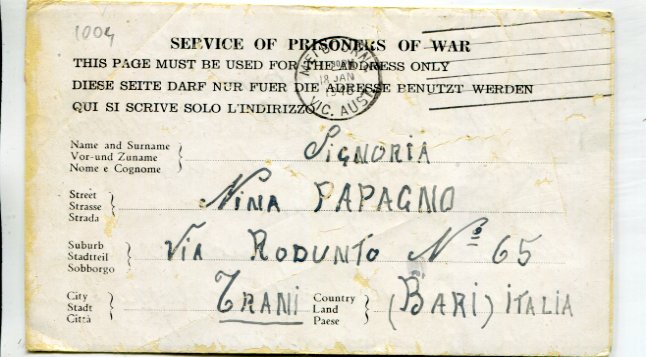 1004
SERVICE OF PRISONERS OF WAR
THIS PAGE MUST BE USED FOR THE ADDRESS ONLY
DIESE SEITE DARF NUR FUER DIE ADRESSE BENUTZT WERDEN
QUI SI SCRIVE SOLO L'INDIRIZZO
MELBOURNE
18 JAN
VIC. AUST.
Name and Surname
Vor-und Zuname
Nome e Cognome
SIGNORIA
Street
Strasse
Strada
NINA PAPAGNO
Suburb
Stadtteil
Sobborgo
VIA RODUNTO Nº 65
City
Stadt
Città
TRANI
Country
Land
Paese
(BARI) ITALIA